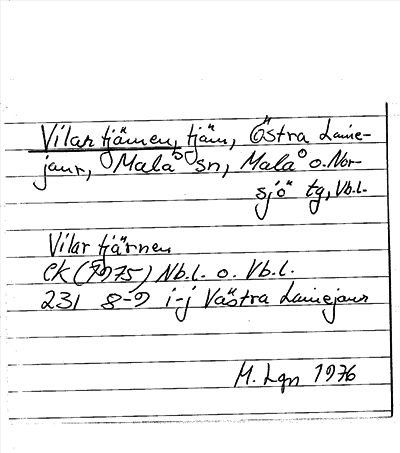 Vilartjärnen, tjärn, Östra Laine-
jaur, Malå sn, Malå o. Nor-
sjö tg, Vb.l.
Vilartjärnen
EK (1975) Nb.l. o. Vb.l.
231 8-9 i-j Västra Lainejaur
M. Lgn 1976